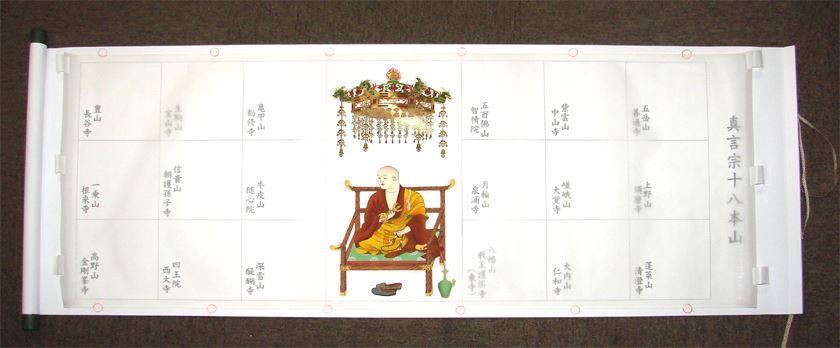 真言宗十八本山
五岳山
善通寺
上野山
須磨寺
蓬莱山
清澄寺
紫雲山
中山寺
嵯峨山
大覚寺
大内山
仁和寺
五百佛山
智積院
月輪山
泉涌寺
八幡山
教王護国寺
(東寺)
亀甲山
勧修寺
牛皮山
随心院
深雪山
醍醐寺
生駒山
宝山寺
信貴山
朝護孫子寺
四王院
西大寺
豊山
長谷寺
一乗山
根来寺
高野山
金剛峯寺